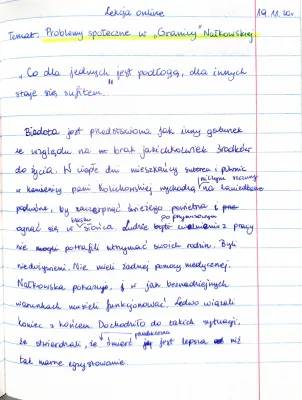 Lekcja online 19.11.20r
Temat: Problemy społeczne w „Granicy" Nałkowskiej.
„Co dla jednych jest podłogą, dla innych
staje się sufitem."
Biedota jest przedstawiona jak inny gatunek
ze względu na brak jakichkolwiek środków
do życia. W ciepłe dni mieszkańcy suteren i piwnic
w kamienicy pani Kolichowskiej wychodzą na kamienne
podwórze, by zaczerpnąć świeżego powietrza i
ogrzać się w blasku słońca. Ludzie po zwolnieniu z pracy
nie potrafili utrzymać swoich rodzin. Byli
niedożywieni. Nie mieli żadnej pomocy medycznej.
Nałkowska pokazuje, w jak beznadziejnych
warunkach musieli funkcjonować. Ledwo wiązali
koniec z końcem. Dochodziło do takich sytuacji,
że stwierdzali, że śmierć jest lepsza niż
tak marne egzystowanie.